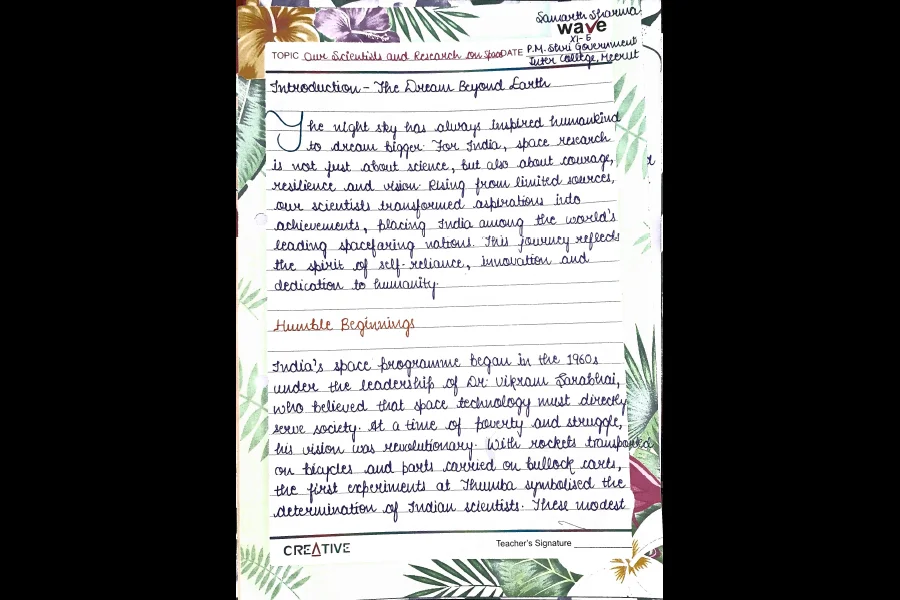 Samarth Sharma
wave
XI-G
TOPIC Our Scientists and Research on Space DATE P.M. Shri Government
Inter College, Meerut
Introduction - The Dream Beyond Earth
The night sky has always inspired humankind
to dream bigger. For India, space research
is not just about science, but also about courage,
resilience and vision. Rising from limited sources,
our scientists transformed aspirations into
achievements, placing India among the world's
leading spacefaring nations. This journey reflects
the spirit of self-reliance, innovation and
dedication to humanity.
Humble Beginnings
India's space programme began in the 1960s
under the leadership of Dr. Vikram Sarabhai,
who believed that space technology must directly
serve society. At a time of poverty and struggle,
his vision was revolutionary. With rockets transported
on bicycles and parts carried on bullock carts,
the first experiments at Thumba symbolised the
determination of Indian scientists. These modest
CREATIVE
Teacher's Signature